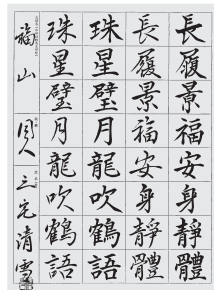 長履景福安身靜體
長履景福安身靜體
珠星璧月龍吹鶴語
珠星璧月龍吹鶴語
福山
三宅清雪